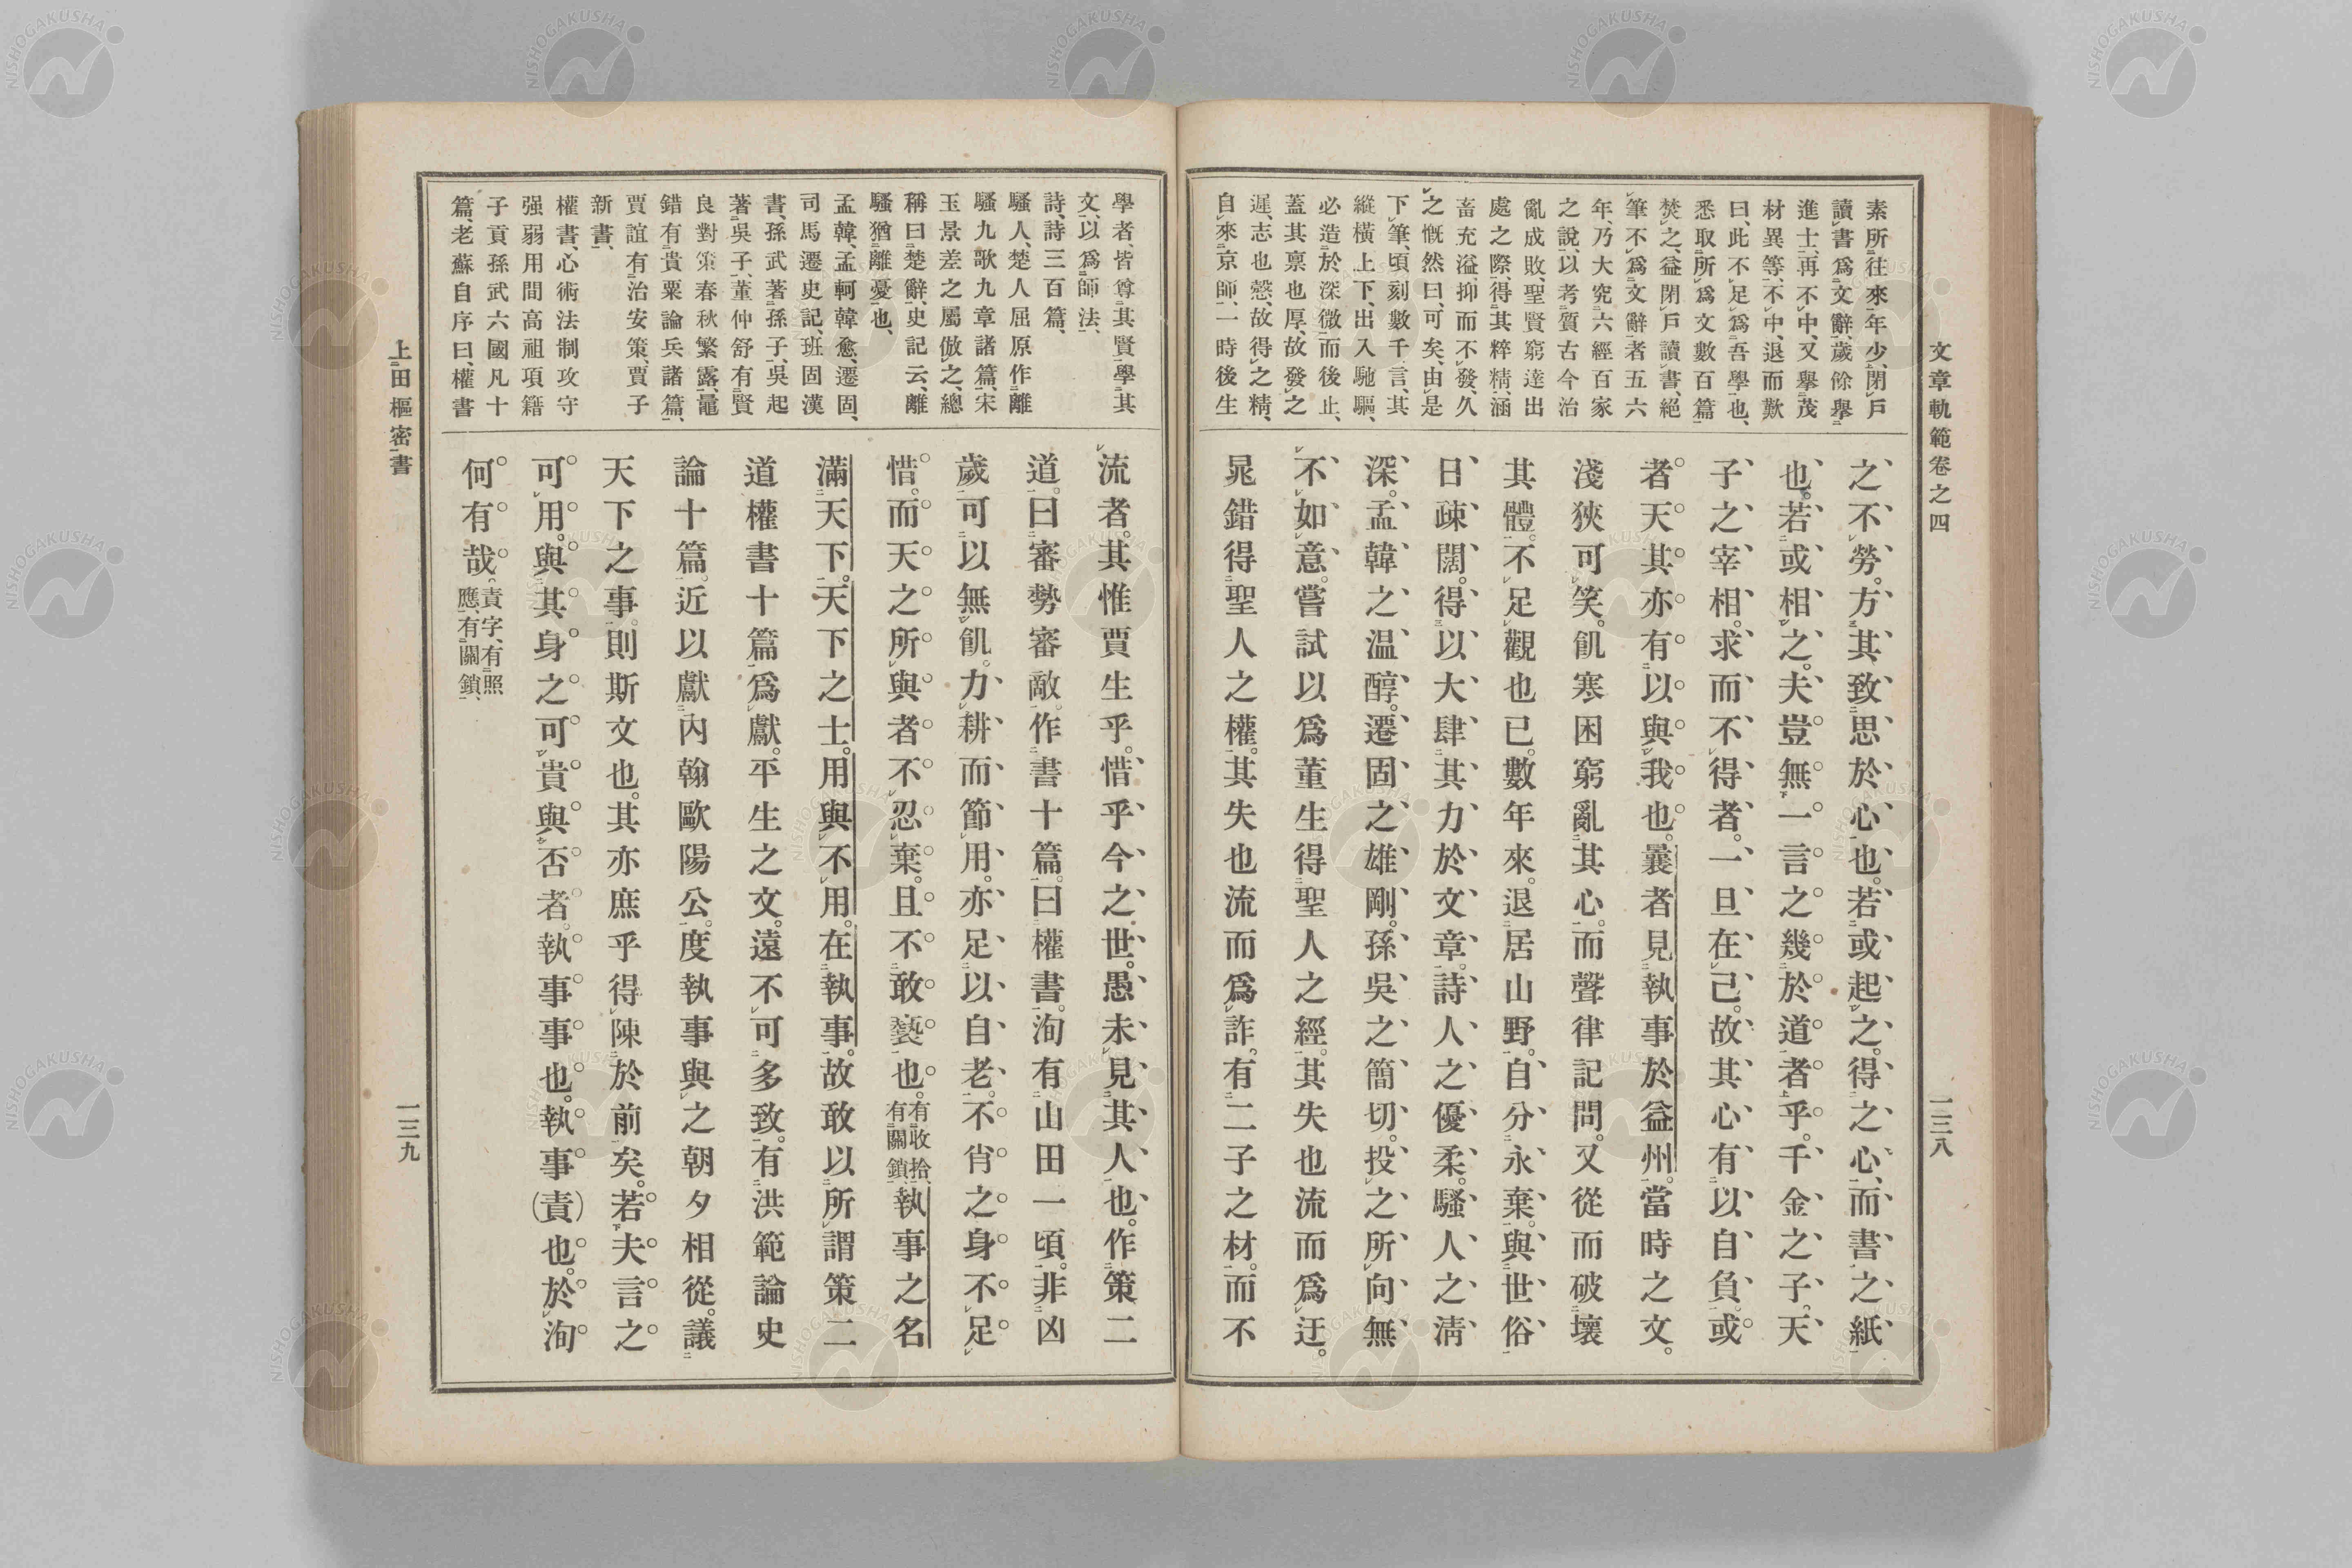 文章軌範卷之四
一三八
素所往來年少、閉戶
讀書爲文辭、歲餘舉
進士、再不中、又舉茂
材異等、不中、退而歎
曰、此不足爲吾學也、
悉取所爲文數百篇
焚之、益閉戶讀書、絕
筆不爲文辭者五六
年、乃大究六經百家
之說、以考質古今治
亂成敗、聖賢窮達出
處之際、得其粹精、涵
畜充溢、抑而不發、久
之慨然曰、可矣、由是
下筆、頃刻數千言、其
縱橫上下、出入馳驅、
必造於深微而後止、
蓋其禀也厚、故發之
遲、志也慤、故得之精、
自來京師、一時後生
之不勞。方其致思於心也。若或起之。得之心、而書之紙
也。若或相之。夫豈無一言之幾於道者乎。千金之子。天
子之宰相。求而不得者。一旦在己。故其心有以自負。或
者天其亦有以與我也。曩者見執事於益州。當時之文。
淺狹可笑。飢寒困窮亂其心。而聲律記問。又從而破壞
其體。不足觀也已。數年來。退居山野。自分永棄。與世俗
日疎闊。得以大肆其力於文章。詩人之優柔。騷人之淸
深。孟韓之温醇。遷固之雄剛。孫吳之簡切。投之所向無
不如意。嘗試以爲董生得聖人之經。其失也流而爲迂。
晁錯得聖人之權。其失也流而爲詐。有二子之材。而不
學者、皆尊其賢、學其
文、以爲師法、
詩、詩三百篇、
騷人、楚人屈原作離
騷九歌九章諸篇、宋
玉景差之屬倣之、總
稱曰楚辭、史記云、離
騷猶離憂也、
孟韓、孟軻韓愈、遷固、
司馬遷史記、班固漢
書、孫武著孫子、吳起
著吳子、董仲舒有賢
良對策春秋繁露、鼂
錯有貴粟論兵諸篇、
賈誼有治安策、賈子
新書、
權書、心術法制攻守
强弱用間高祖項籍
子貢孫武六國凡十
篇、老蘇自序曰、權書
流者。其惟賈生乎。惜乎今之世。愚未見其人也。作策二
道。曰審勢審敵。作書十篇。曰權書。洵有山田一頃。非凶
歲可以無飢。力耕而節用。亦足以自老。不肖之身不足
惜。而天之所與者不忍棄。且不敢褻也。有收拾、有關鎖、執事之名
滿天下。天下之士。用與不用。在執事。故敢以所謂策二
道權書十篇爲獻。平生之文。遠不可多致。有洪範論史
論十篇。近以獻內翰歐陽公。度執事與之朝夕相從。議
天下之事。則斯文也。其亦庶乎得陳於前矣。若夫言之
可用。與其身之可貴與否者。執事事也。執事(責)也。於洵
何有哉。責字、有照應、有關鎖、
上田樞密書
一三九